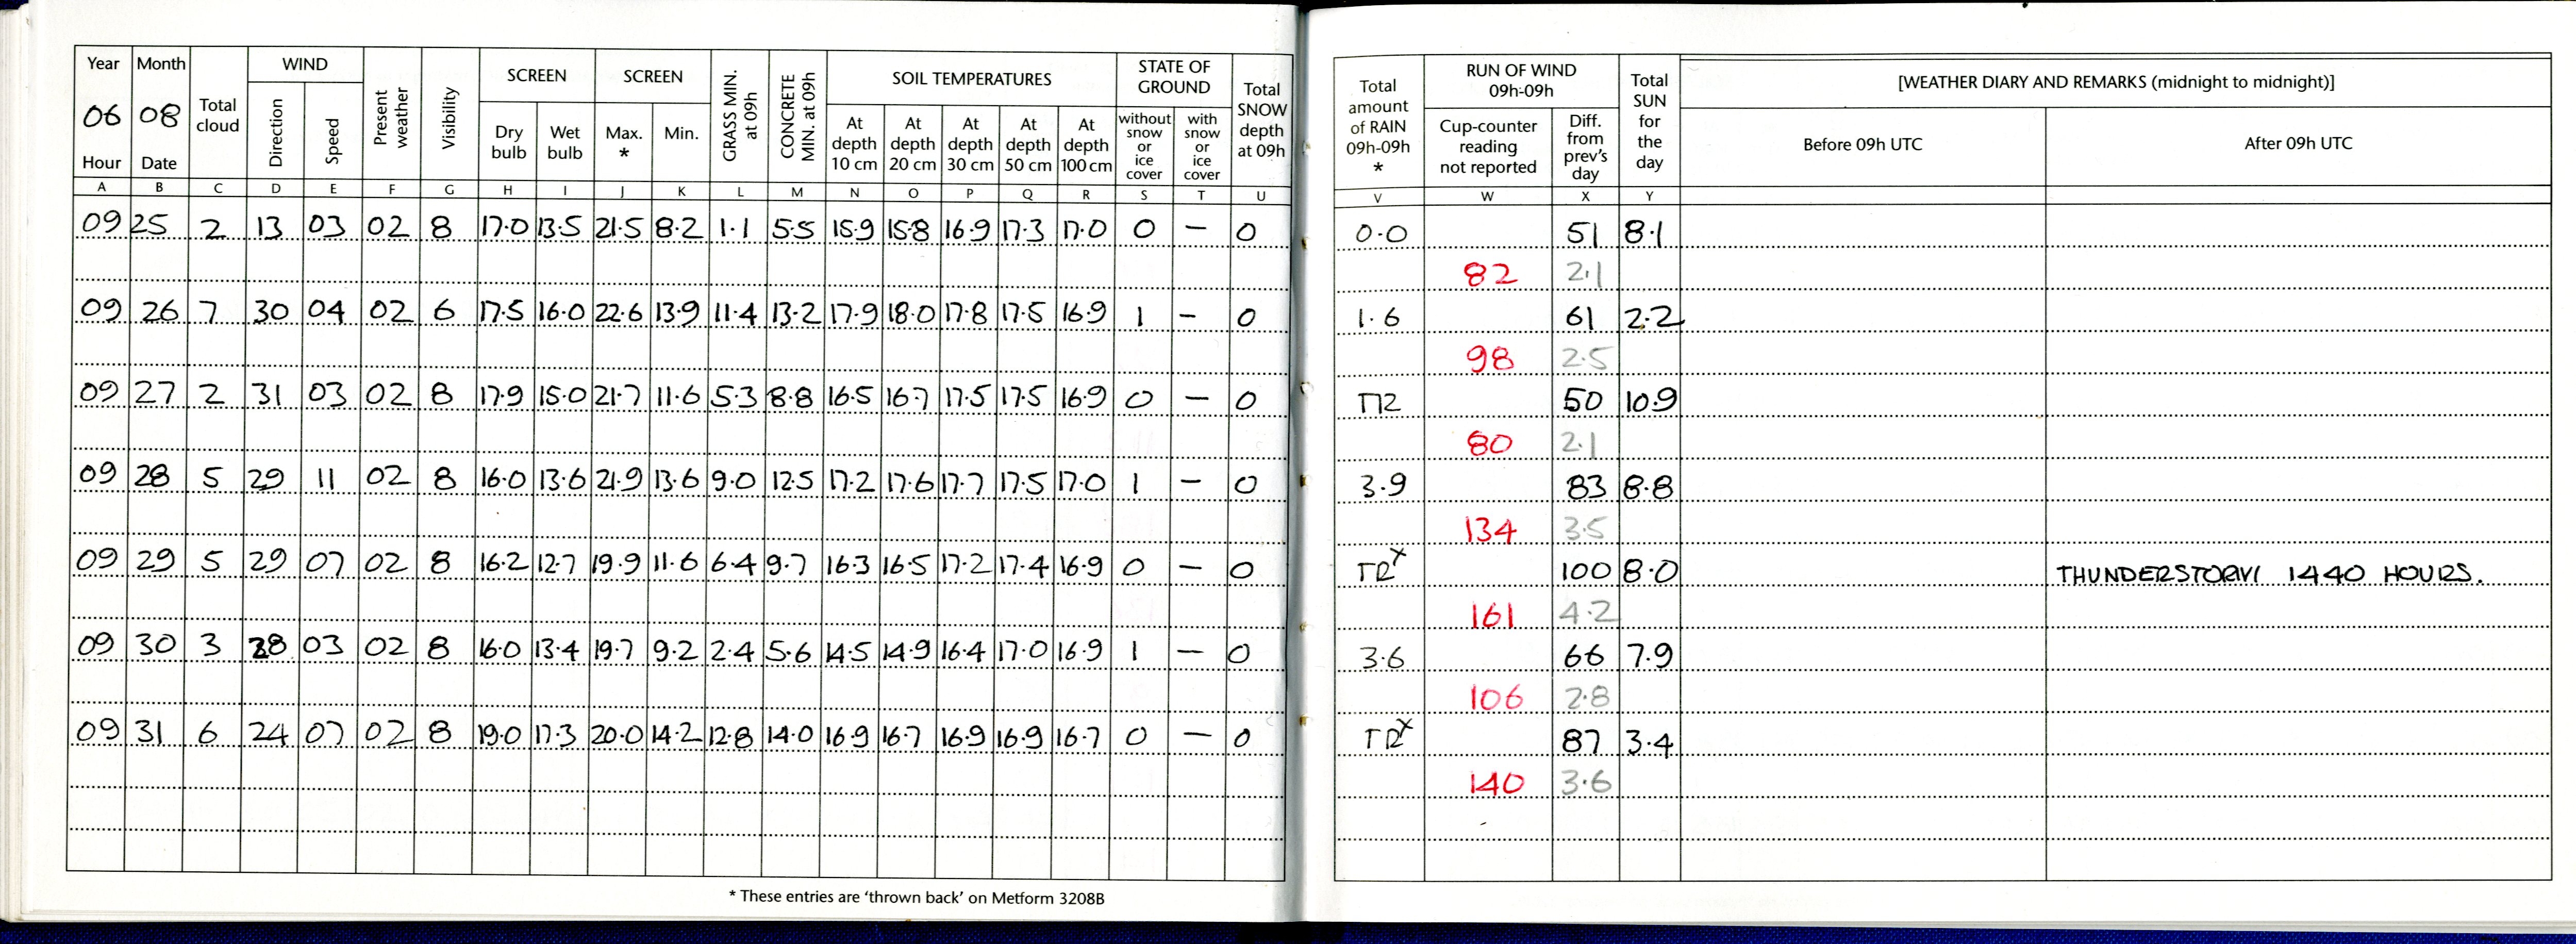 Year Month Total cloud WIND Present weather Visibility SCREEN SCREEN GRASS MIN. at 09h CONCRETE MIN. at 09h SOIL TEMPERATURES STATE OF GROUND Total SNOW depth at 09h Total amount of RAIN 09h-09h * RUN OF WIND 09h-09h Total SUN for the day [WEATHER DIARY AND REMARKS (midnight to midnight)]
06 08 Direction Speed Dry bulb Wet bulb Max. * Min. At depth 10 cm At depth 20 cm At depth 30 cm At depth 50 cm At depth 100 cm without snow or ice cover with snow or ice cover Cup-counter reading not reported Diff. from prev's day Before 09h UTC After 09h UTC
Hour Date
A B C D E F G H I J K L M N O P Q R S T U V W X Y
09 25 2 13 03 02 8 17.0 13.5 21.5 8.2 1.1 5.5 15.9 15.8 16.9 17.3 17.0 0 — 0 0.0 51 8.1
82 2.1
09 26 7 30 04 02 6 17.5 16.0 22.6 13.9 11.4 13.2 17.9 18.0 17.8 17.5 16.9 1 — 0 1.6 61 2.2
98 2.5
09 27 2 31 03 02 8 17.9 15.0 21.7 11.6 5.3 8.8 16.5 16.7 17.5 17.5 16.9 0 — 0 TR 50 10.9
80 2.1
09 28 5 29 11 02 8 16.0 13.6 21.9 13.6 9.0 12.5 17.2 17.6 17.7 17.5 17.0 1 — 0 3.9 83 8.8
134 3.5
09 29 5 29 07 02 8 16.2 12.7 19.9 11.6 6.4 9.7 16.3 16.5 17.2 17.4 16.9 0 — 0 TR x 100 8.0 THUNDERSTORM 1440 HOURS.
161 4.2
09 30 3 28 03 02 8 16.0 13.4 19.7 9.2 2.4 5.6 14.5 14.9 16.4 17.0 16.9 1 — 0 3.6 66 7.9
106 2.8
09 31 6 24 07 02 8 19.0 17.3 20.0 14.2 12.8 14.0 16.9 16.7 16.9 16.9 16.7 0 — 0 TR x 87 3.4
140 3.6
* These entries are 'thrown back' on Metform 3208B